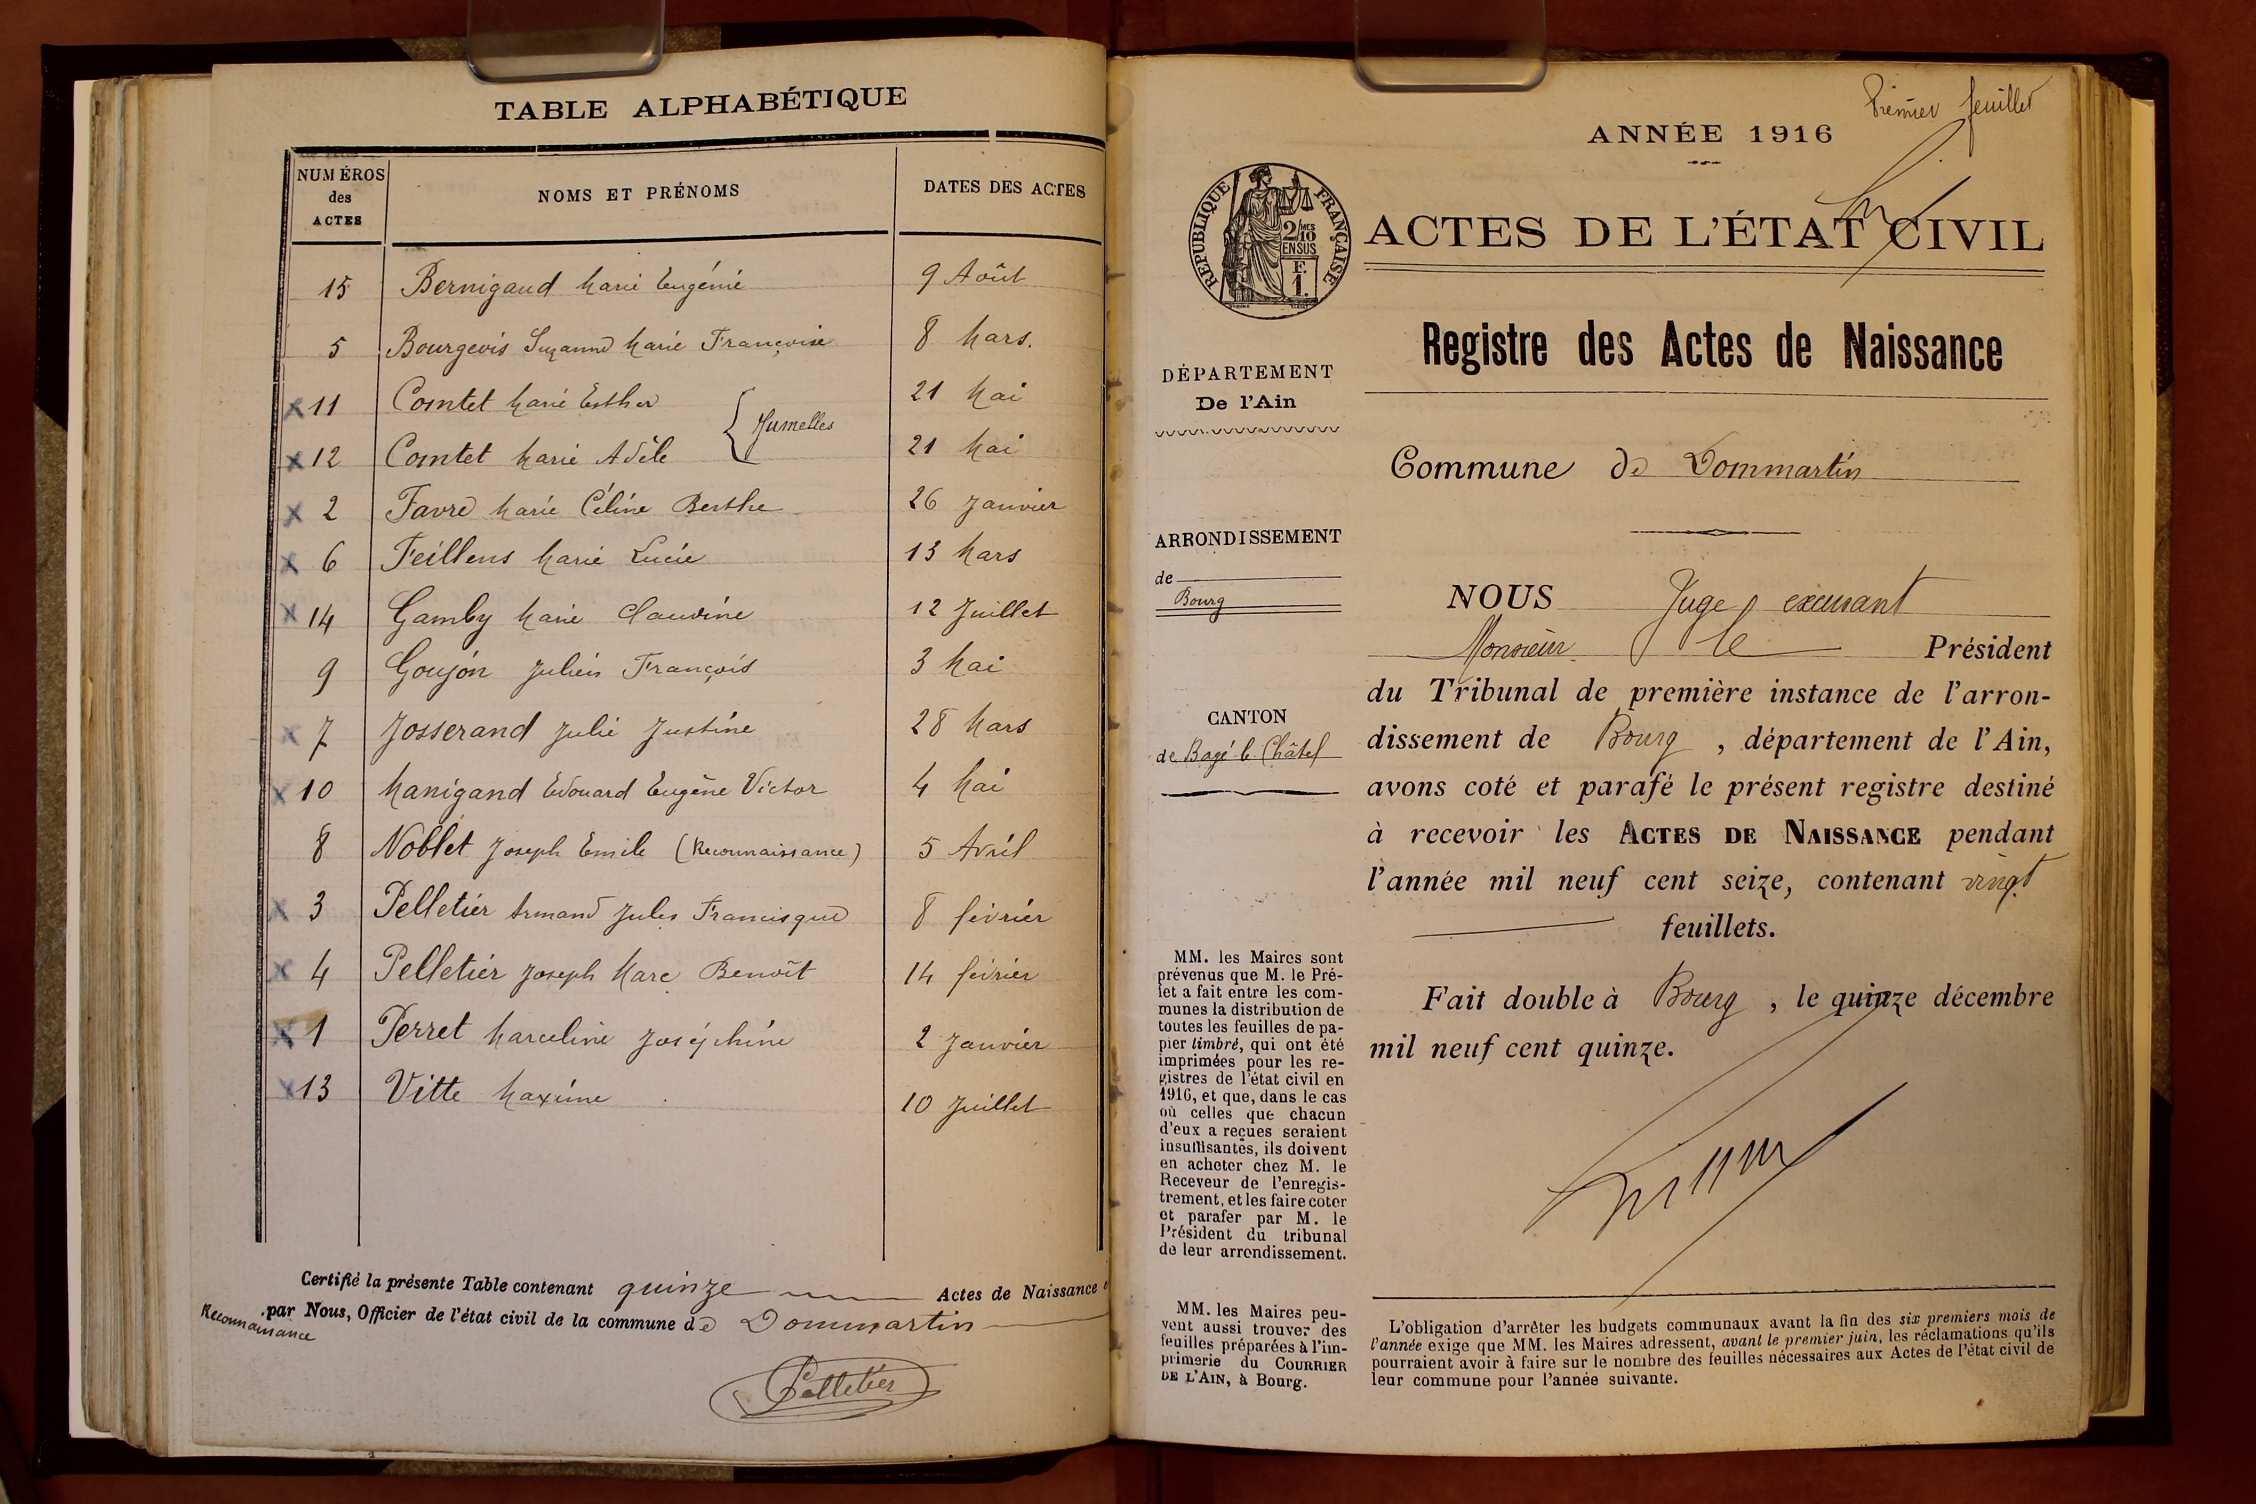 TABLE ALPHABÉTIQUE
NUMÉROS des ACTES NOMS ET PRÉNOMS DATES DES ACTES
15 Bernigaud Marie Eugénie 9 Août
5 Bourgeois Suzanne Marie Françoise 8 Mars.
x 11 Comtet Marie Esther 21 Mai
{ Jumelles
x 12 Comtet Marie Adèle 21 Mai
x 2 Favre Marie Céline Berthe 26 Janvier
x 6 Feillens Marie Lucie 13 Mars
x 14 Gamby Marie Claudine 12 Juillet
9 Goujon Julien François 3 Mai
x 7 Josserand Julie Justine 28 Mars
x 10 Manigand Edouard Eugène Victor 4 Mai
8 Noblet Joseph Emile (Reconnaissance) 5 Avril
x 3 Pelletier Armand Jules Francisque 8 février
x 4 Pelletier Joseph Marc Benoît 14 février
x 1 Perret Marceline Joséphine 2 Janvier
x 13 Vitte Maxime 10 Juillet
Certifié la présente Table contenant quinze Actes de Naissance
Reconnaissance
par Nous, Officier de l'état civil de la commune de Dommartin
Pelletier
Premier feuillet
ANNÉE 1916
RÉPUBLIQUE FRANÇAISE
2/10MES
EN SUS
F.
1.
ACTES DE L'ÉTAT CIVIL
Registre des Actes de Naissance
DÉPARTEMENT
De l'Ain
Commune de Dommartin
ARRONDISSEMENT
de
Bourg
CANTON
de Bagé-le-Châtel
NOUS Juge excusant
Monsieur le Président
du Tribunal de première instance de l'arron-
dissement de Bourg, département de l'Ain,
avons coté et parafé le présent registre destiné
à recevoir les ACTES DE NAISSANCE pendant
l'année mil neuf cent seize, contenant vingt
feuillets.
Fait double à Bourg, le quinze décembre
mil neuf cent quinze.
MM. les Maires sont
prévenus que M. le Pré-
fet a fait entre les com-
munes la distribution de
toutes les feuilles de pa-
pier timbré, qui ont été
imprimées pour les re-
gistres de l'état civil en
1916, et que, dans le cas
où celles que chacun
d'eux a reçues seraient
insuffisantes, ils doivent
en acheter chez M. le
Receveur de l'enregis-
trement, et les faire coter
et parafer par M. le
Président du tribunal
de leur arrondissement.
MM. les Maires peu-
vent aussi trouver des
feuilles préparées à l'im-
primerie du COURRIER
DE L'AIN, à Bourg.
L'obligation d'arrêter les budgets communaux avant la fin des six premiers mois de
l'année exige que MM. les Maires adressent, avant le premier juin, les réclamations qu'ils
pourraient avoir à faire sur le nombre des feuilles nécessaires aux Actes de l'état civil de
leur commune pour l'année suivante.